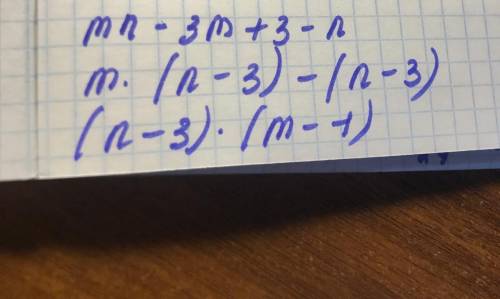 mn - 3m + 3 - n
m · (n - 3) - (n - 3)
(n - 3) · (m - 1)